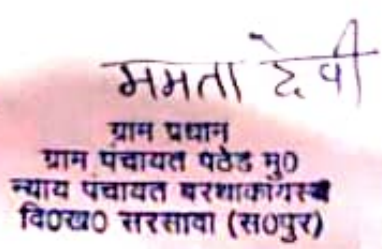 ममता देवी
ग्राम प्रधान
ग्राम पंचायत पठेड मु0
न्याय पंचायत
वि0ख0 सरसावा (स0पुर)